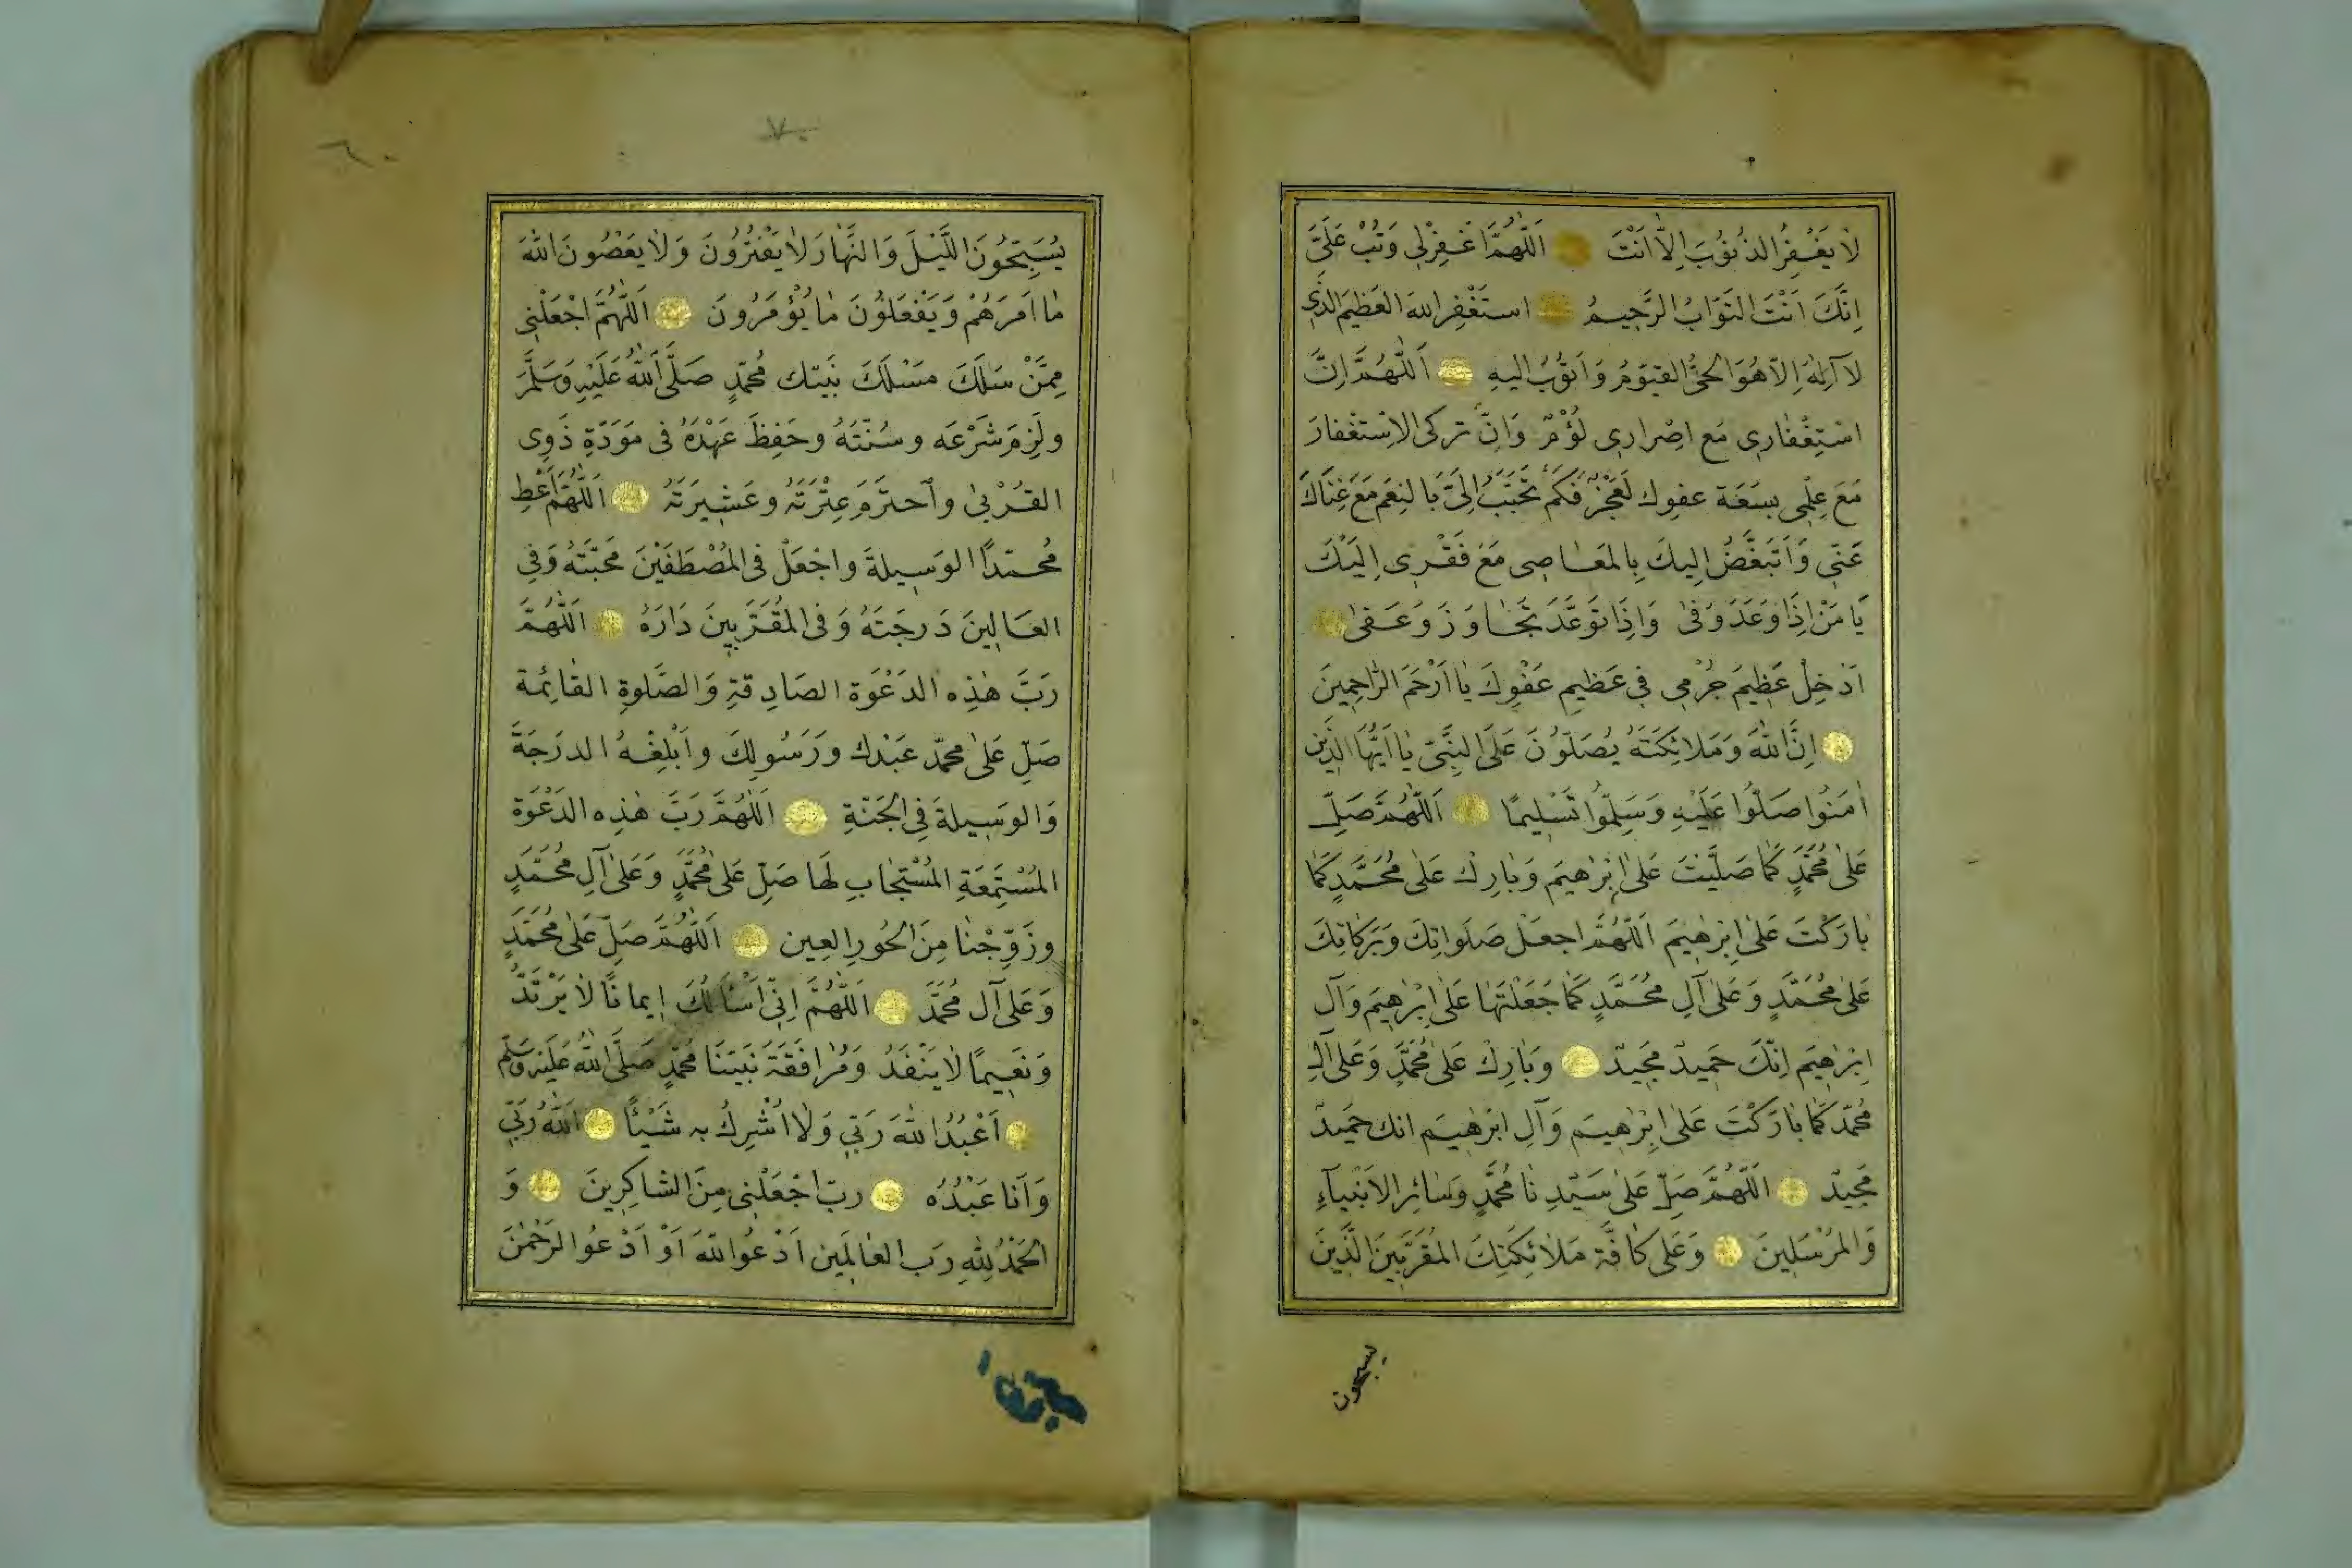 لَا يَغْفِرُ الذُنُوُبَ اِلَّا اَنْتَ اَللّٰهُمَّ اغْفِرْلِي وَتُبْ عَلَيَّ
اِنَّكَ اَنْتَ التَوَّابُ الرَّحِيمُ استَغْفِرُ اللهَ العَظِيمَ الذِي
لَا آِلٰهَ اِلَّا هُوَ الحَيُّ القَيّوُمُ وَاَتوُبُ اليهِ اَللّٰهُمَّ اِنَّ
اسْتِغْفَارِي مَع اِصْرارِي لُؤْمٌ وَاِنَّ تركى الاِسْتغفارَ
مَعَ عِلْمِى بِسَعَة عفوِك لَعَجْزٌ فَكَمْ تَحَبَّبُ اِلَىَّ بالنِعَمِ مَعَ غِنَاكَ
عَنّى وَاَتَبَغَّضُ اِليكَ بِالمَعَاصِى مَعَ فَقْرِى اِلَيْكَ
يَا مَنْ اِذَا وَعَدَ وَفىٰ وَاِذَا تَوَعَّدَ تَجَاوَزَ وَعَفىٰ
اَدْخِلْ عَظِيمَ جُرْمِى فِي عَظيمِ عَفْوِكَ يَا اَرْحَمَ الرَّاحِمِينَ
اِنَّ اللهَ وَمَلَائِكَتَهُ يُصَلّوُنَ عَلَى النِبَّىِ يٰا اَيُّهَا الذِينَ
اٰمَنُوا صَلّوُا عَلَيْهِ وَسَلِّمُوا تَسْلِيمًا اَللّٰهُمَّ صَلِّ
عَلىٰ مُحَمَّدٍ كَمَا صَلَّيْتَ عَلىٰ اِبْرٰهيَم وَبَارِكْ عَلىٰ مُحَمَّدٍ كَمَا
بٰارَكْتَ عَلىٰ اِبْرٰهيمَ اَللّٰهُمَّ اجعَلْ صَلَواتِكَ وَبَرَكَاتِكَ
عَلىٰ مُحَمَّدٍ وَعَلىٰ آلِ مُحَمَّدٍ كَمَا جَعَلْتَهَا عَلىٰ اِبْرٰهِيمَ وَآلِ
اِبْرٰهِيَم اِنّكَ حَمِيدٌ مَجِيدٌ وَبَارِكْ عَلىٰ مُحَمَّدٍ وَعَلىٰ آلِ
مُحَمّد كَمَا بٰارَكْتَ عَلىٰ اِبْرٰهيَم وَآلِ ابْرٰهيَم انك حَمِيدٌ
مَجِيدٌ اَللّٰهُمَّ صَلِّ عَلىٰ سَيّدِنَا مُحَمَّدٍ وَسٰائِرِ الاَنْبيآءِ
وَالمُرْسَلِينَ وَعَلى كَافَّةِ مَلٰائِكَتِكَ المُقَرَّبيَن الَّذِينَ
يسبحون
٦٠
٧٠
يُسَبِّحُونَ اللَّيْلَ وَالنَّهَارَ لٰا يَفْتُرُونَ وَلٰا يَعْصُونَ اللهَ
مٰا اَمَرَهُمْ وَيَفْعَلوُنَ مٰا يُؤْمَرُونَ اَللّٰهُمَّ اجْعَلْنِى
مِمَّنْ سَلَكَ مَسْلَكَ نَبيّك مُحَمّدٍ صَلَّى اَللهُ عَلَيْهِ وَسَلَّمَ
ولَزِمَ شَرْعَه وسُنّتَهُ وحَفِظَ عَهْدَهُ فى مَوَدّةِ ذَوِى
القُرْبىٰ واحترَمَ عِتْرَتَهُ وعَشِيرَتَهُ اَللّٰهُمَّ اَعْطِ
مُحمّدًا الوَسِيلةَ واجْعَلْ فى المُصْطَفَيْنَ مَحَبّتَهُ وَفِي
العَالِينَ دَرجَتَهُ وَفى المُقَرَّبِينَ دَارَهُ اَللّٰهُمَّ
رَبَّ هٰذِه الدَعْوَة الصَادِقةِ وَالصَّلٰوةِ القَائِمة
صَلِّ عَلىٰ محمّد عَبْدك وَرَسُولِكَ واَبْلِغْهُ الدرَجَةَ
وَالوَسِيلةَ فِي الجَنّةِ اَللّٰهُمَّ رَبَّ هٰذِه الدَعْوَة
المُسْتَمِعَةِ المُسْتَجَابِ لَهَا صَلِّ عَلىٰ مُحَمَّدٍ وَعَلىٰ آلِ مُحَمَّدٍ
وزَوِّجْنا مِنَ الحُورِ العِين اَللّٰهُمَّ صَلِّ عَلىٰ مُحَمَّدٍ
وَعَلىٰ آل مُحَمَّد اَللّٰهُمَّ اِنِّى اَسْأَلُكَ إيمانًا لٰا يَرْتَدُّ
وَنَعِيمًا لٰا يَنْفَدُ وَمُرٰافَقَةَ نَبيّنَا مُحَمّدٍ صَلَّى اللهُ عَلَيْهِ وَسَلّم
اَعْبُدُ اللهَ رَبّي وَلٰا اُشْرِكُ بِه شَيْئًا اَللهُ رَبّي
وَاَنَا عَبْدُهُ ربّ اجْعَلْنى مِنَ الشاكِرِينَ وَ
الحَمْدُ لِلّٰهِ رَب العٰالَمِين اَدْعُو اللهَ اَوْ اَدْعُو الرَحْمٰنَ